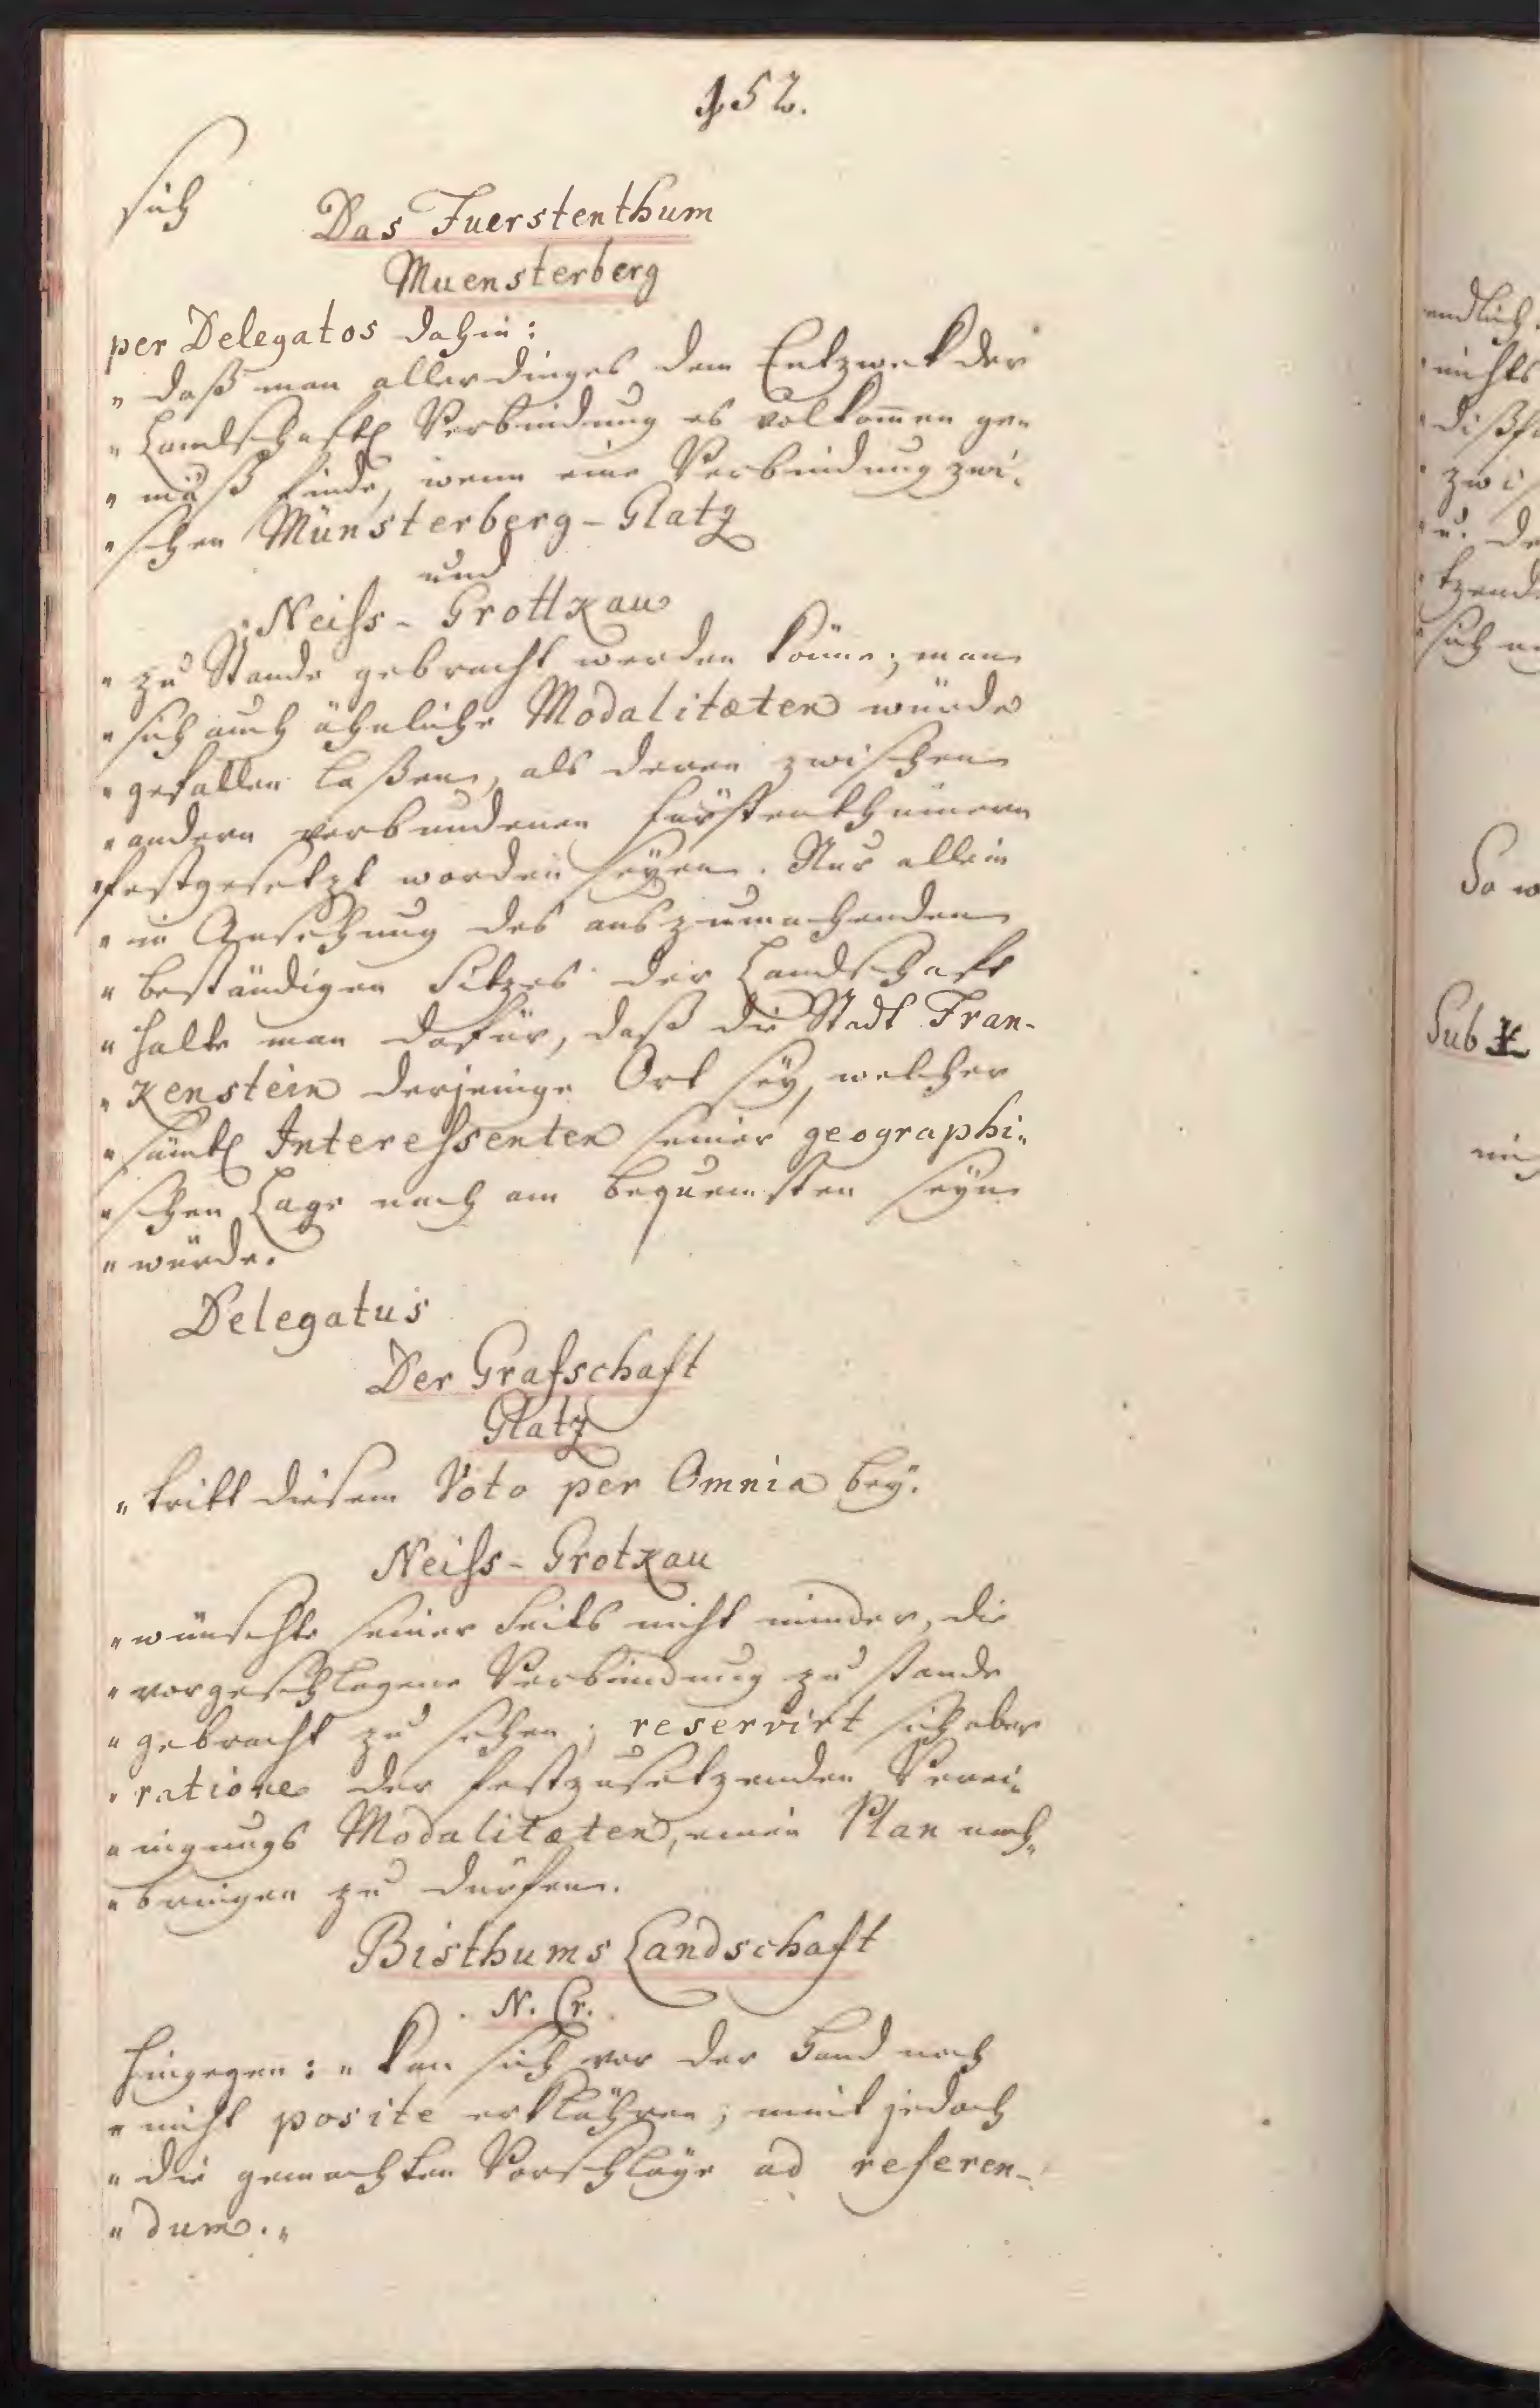 152.
sich
Das Fuerstenthum
Muensterberg
per Delegatos dahin:
„ daß man allerdinges dem Entzwek der
„ Landschaftl Verbindung es volkom̄en ge„
„ mäß finde, wenn eine Verbindung zwi„
„ schen Münsterberg-Glatz
und
„ Neiss-Grottkau
„ zu Stande gebracht werden könne; man
„ sich auch ähnliche Modalitæten würde
„ gefallen laßen, als deren zwischen
„ andern verbundenen Fürstenthümern
„ festgesetzt worden seÿen. Nur allein
„ in Ansehung des auszumachenden
„ beständigen Sitzes der Landschaft
„ halte man dafür, daß die Stadt Fran-
„ kenstein derjenige Ort seÿ, welcher
„ sämtl Interessenten seiner geographi„
„ schen Lage nach am bequemsten seÿn
„ würde.
Delegatus
Der Grafschaft
Glatz
„ tritt diesem Voto per Omnia beÿ.
Neiss-Grotkau
„ wünschte seiner Seits nicht minder, die
„ vorgeschlagene Verbindung zu stande
„ gebracht zu sehen; reservirt sich aber
„ ratione der festzusetzenden Verei„
„ nigungs Modalitæten, einen Plan nach„
„ bringen zu dürfen.
Bisthums Landschaft
N. Cr.
hingegen: „ kan sich vor der Hand noch
„ nicht posite erklähren; nimt jedoch
„ die gemachten Vorschläge ad referen-
„ dum. „
endlich
nichts
dißf
zwi
u. de
tzend
sich
So w
Sub